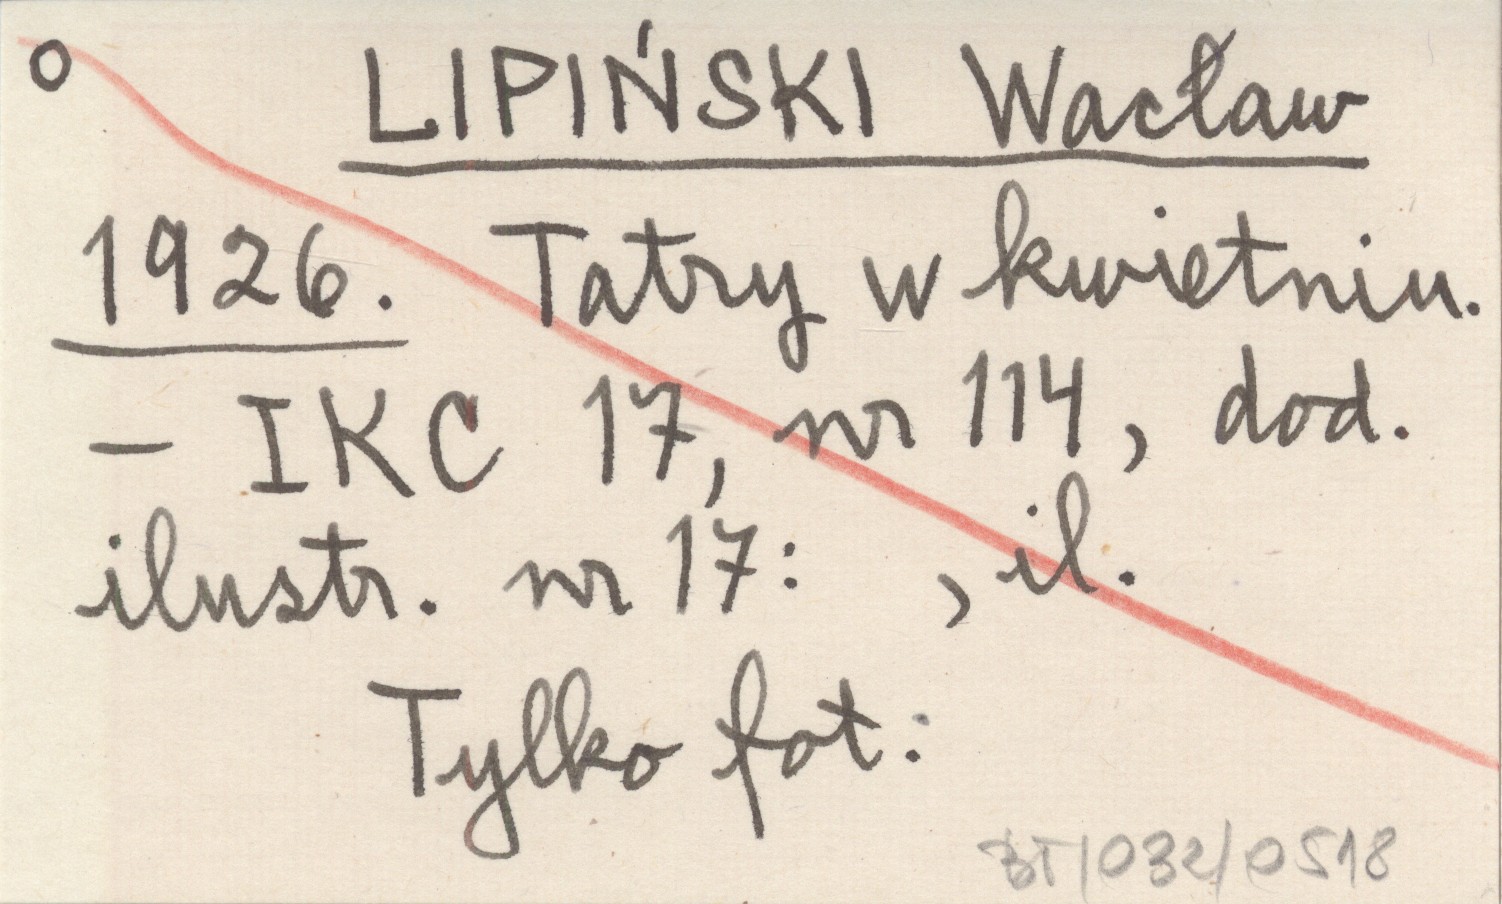 o LIPIŃSKI Wacław
1926. Tatry w kwietniu.
– IKC 17, nr 114, dod.
ilustr. nr 17: , il.
Tylko fot:
BT/032/0518